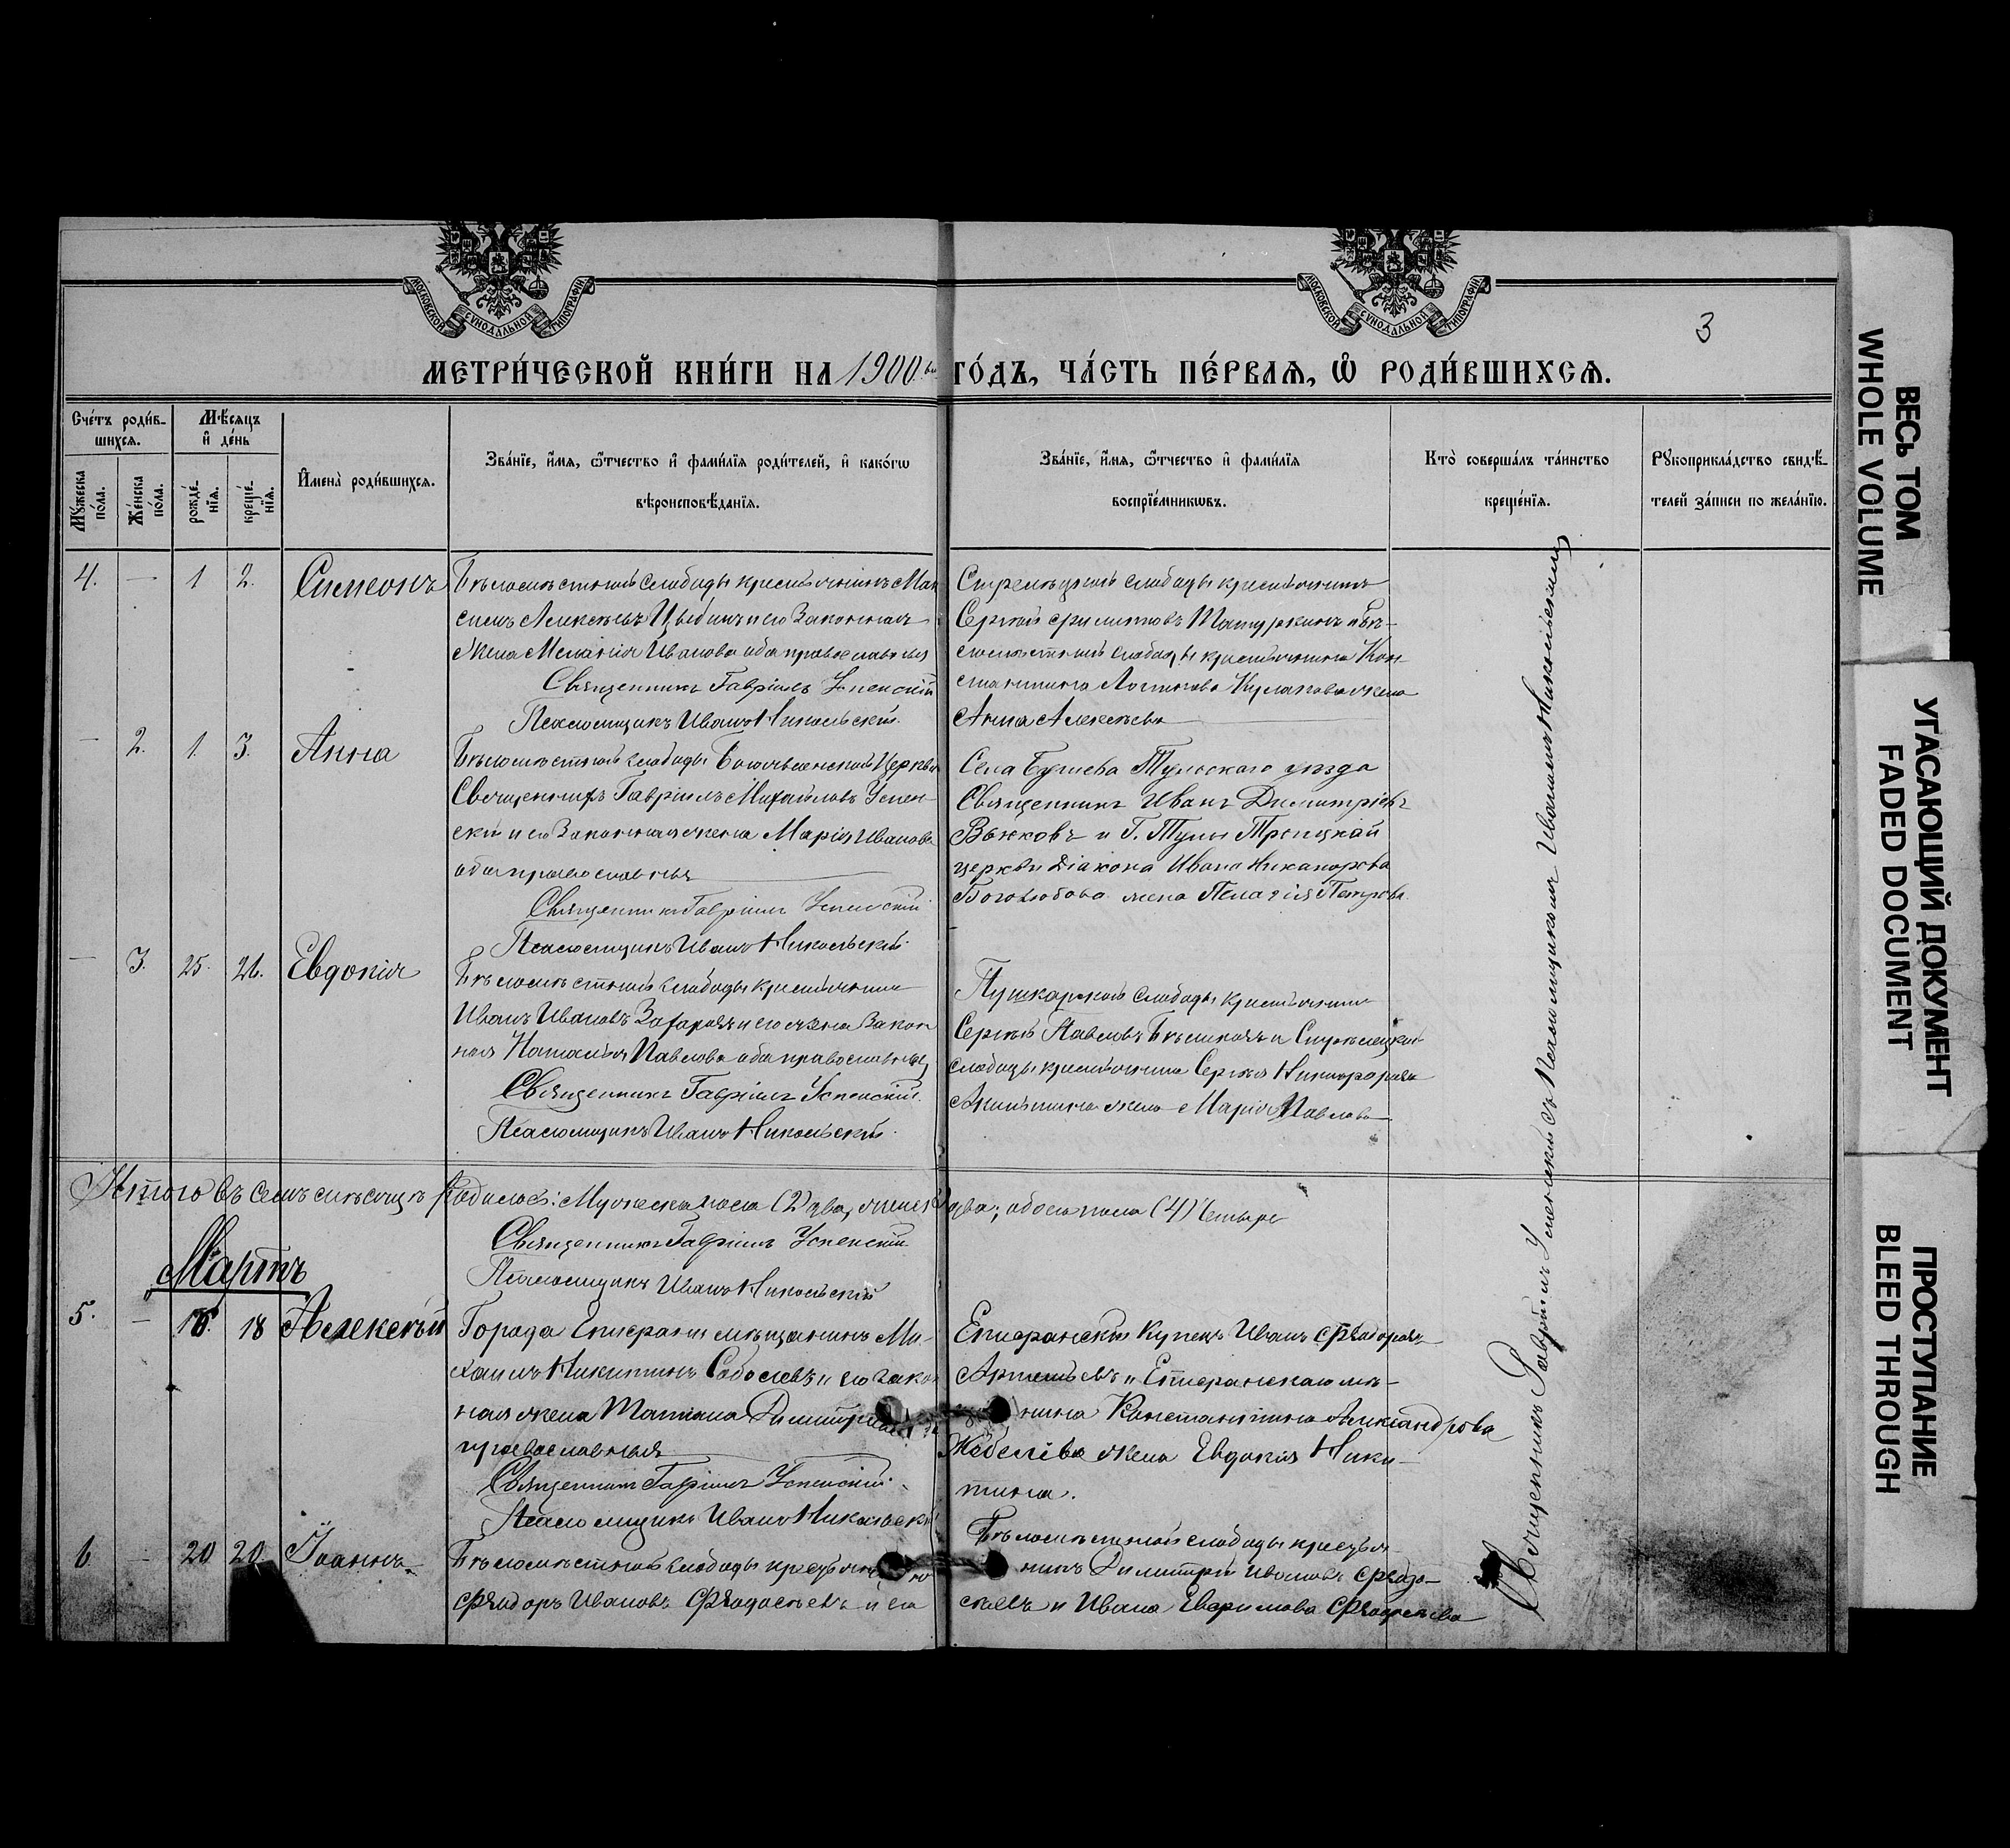 МОСКОВСКОЙ СУНОДАЛЬНОЙ ТИПОГРАФІИ
МОСКОВСКОЙ СУНОДАЛЬНОЙ ТИПОГРАФІИ
3
МЕТРИ́ЧЕСКОЙ КНИ́ГИ НА 1900 ГО́ДЪ, ЧА́СТЬ ПЕ́РВАЯ, Ѡ РОДИ́ВШИХСЯ.
Сче́тъ роди́вшихся.
Мѣ́сяцъ и де́нь
Му́жеска по́ла.
Же́нска по́ла.
рожде́нія.
креще́нія.
Имена̀ роди́вшихся.
Зва́ніе, и́мя, ѻ́тчество и фами́лія роди́телей, и како́гѡ
вѣроисповѣ́данія.
Зва́ніе, и́мя, ѻ́тчество и фами́лія
воспріе́мникѡвъ.
Кто̀ соверша́лъ та́инство
креще́нія.
Рукоприкла́дство свидѣ́телей за́писи по жела́нію.
4. — 1 2. Симеонъ
Бѣломѣстной слободы крестьянинъ Мак
симъ Алексѣевъ Цыбинъ и его законная
жена Меланія Иванова оба православныя
Священникъ Гавріилъ Успенскій
Псаломщикъ Иванъ Никольскій.
Стрелецкой слободы крестьянинъ
Сергѣй Филиповъ и Бѣ-
ломѣстной слободы крестьянина Кон-
стантина Логинова Кулакова жена
Анна Алексѣева
— 2. 1. 3. Анна
Бѣломѣстной слободы Богоявленской церкви
Священникъ Гавріилъ Михайловъ Успен-
скій и его законная жена Марія Иванова
оба православныя
Священникъ Гавріилъ Успенскій
Псаломщикъ Иванъ Никольскій.
Села Тульскаго уѣзда
Священникъ Иванъ Димитріевъ
и Г. Тулы Троицкой
церкви Діакона Ивана Никанорова
Боголюбова жена Пелагія Петрова.
— 3. 25. 26. Евдокія
Бѣломѣстной слободы крестьянинъ
Иванъ Ивановъ Захаровъ и его жена Закон
ная Наталья Павлова оба православныя
Священникъ Гавріилъ Успенскій.
Псаломщикъ Иванъ Никольскій.
Пушкарской слободы крестьянинъ
Сергѣй Павловъ и Стрелецкой
слободы крестьянина Сергѣя Никифорова
жена Марія Павлова
Итого въ семъ мѣсяцѣ родилось: Мужеска пола (2) два, женск два; обоего пола (4) четыре
Священникъ Гавріилъ Успенскій
Псаломщикъ Иванъ Никольскій
Мартъ
5. — 18 Алексѣй
Города Епифани мѣщанинъ Ми-
хаилъ Никитинъ Соболевъ и его закон
ная жена Татіана Димитріева
православныя
Священникъ Гавріилъ Успенскій.
Псаломщикъ Иванъ Никольскій
Епифанскій Купецъ Иванъ Ѳеодоровъ
Артемьевъ и Епифанскаго мѣ-
нина Константина Александрова
жена Евдокія Ники-
тина.
6 — 20 20 Іоаннъ
Бѣломѣстной слободы
Ѳеодоръ Ивановъ Ѳеодосѣевъ и его
Бѣломѣстной слободы крестья-
нинъ Димитрій Ивановъ Ѳеодо-
сѣевъ и Ивана Ефимова Ѳеодосѣева
Священникъ Гавріилъ Успенскій съ Псаломщикомъ Иваномъ Никольскимъ
ВЕСЬ ТОМ
WHOLE VOLUME
УГАСАЮЩИЙ ДОКУМЕНТ
FADED DOCUMENT
ПРОСТУПАНИЕ
BLEED THROUGH